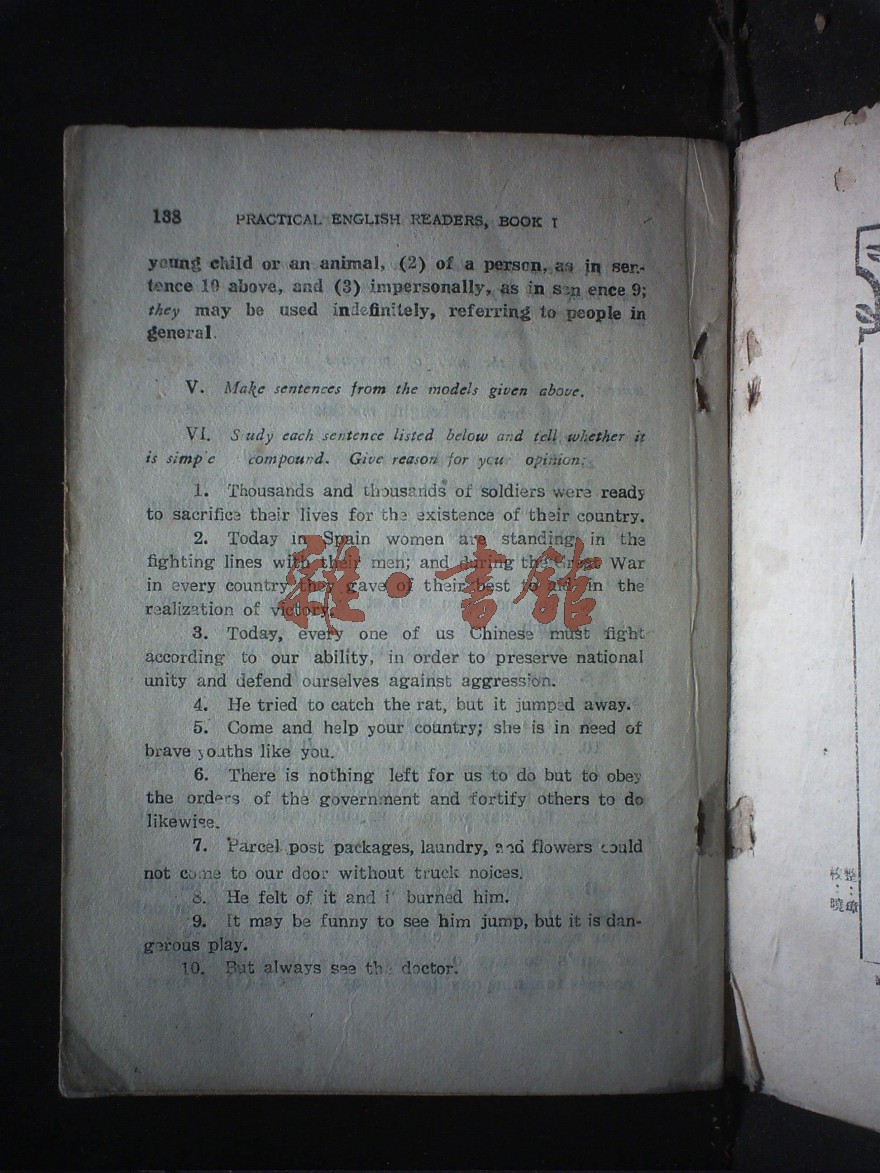 138 PRACTICAL ENGLISH READERS, BOOK I
young child or an animal, (2) of a person, as in sen-
tence 10 above, and (3) impersonally, as in sen ence 9;
they may be used indefinitely, referring to people in
general.
V. Make sentences from the models given above.
VI. S udy each sentence listed below and tell whether it
is simp e compound. Give reason for you opinion.
1. Thousands and thousands of soldiers were ready
to sacrifice their lives for the existence of their country.
2. Today in Spain women are standing in the
fighting lines with their men; and during the Great War
in every country they gave of their best to aid in the
realization of victory.
3. Today, every one of us Chinese must fight
according to our ability, in order to preserve national
unity and defend ourselves against aggression.
4. He tried to catch the rat, but it jumped away.
5. Come and help your country; she is in need of
brave youths like you.
6. There is nothing left for us to do but to obey
the orders of the government and fortify others to do
likewise.
7. Parcel post packages, laundry, and flowers could
not come to our door without truck noices.
8. He felt of it and i burned him.
9. It may be funny to see him jump, but it is dan-
gerous play.
10. But always see the doctor.
雜·書館